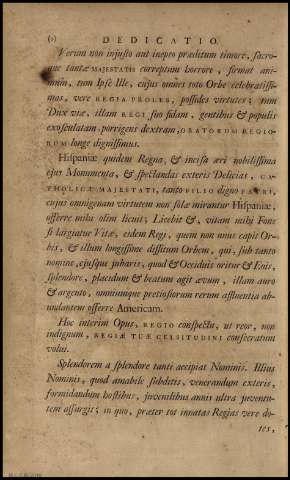 (2) DEDICATIO.
Verum non injusto aut inepto præditum timore, sacro-
que tantæ MAJESTATIS correptum horrore, firmat ani-
mum, tum Ipse Ille, cujus omnes toto Orbe celebratissi-
mas, vere REGIA PROLES, possides virtutes; tum
Dux vitæ, illam REGI suo fidam, gentibus & populis
exosculatam porrigens dextram, ORATORUM REGIO-
RUM longe dignissimus.
Hispaniæ quidem Regna, & incisa æri nobilissima
ejus Monumenta, & spectandas exteris Delicias, CA-
THOLICÆ MAJESTATI, tanto FILIO digno PATRI,
cujus omnigenam virtutem non solæ mirantur Hispaniæ,
offerre mihi olim licuit; Licebit &, vitam mihi Fons
si largiatur Vitæ, eidem Regi, quem non unus capit Or-
bis, & illum longissime dissitum Orbem, qui, sub tanto
nomine, ejusque jubaris, quod & Occiduis oritur & Eois,
splendore, placidum & beatum agit ævum, illam auro
& argento, omniumque pretiosiorum rerum affluentia ab-
undantem offerre Americam.
Hoc interim Opus, REGIO conspectu, ut reor, non
indignum, REGIÆ TUÆ CELSITUDINI consecratum
volui.
Splendorem a splendore tanti accipiat Nominis. Illius
Nominis, quod amabile subditis, venerandum exteris,
formidandum hostibus, juvenilibus annis ultra juventu-
tem assurgit; in quo, præter tot innatas Regias vere do-
tes,